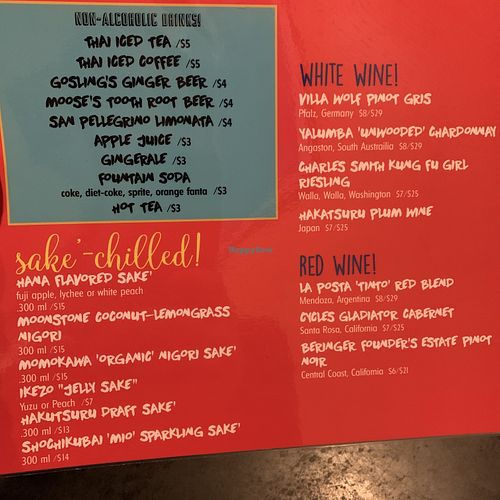 NON-ALCOHOLIC DRINKS!
THAI ICED TEA /$5
THAI ICED COFFEE /$5
GOSLING'S GINGER BEER /$4
MOOSE'S TOOTH ROOT BEER /$4
SAN PELLEGRINO LIMONATA /$4
APPLE JUICE /$3
GINGERALE /$3
FOUNTAIN SODA
coke, diet-coke, sprite, orange fanta /$3
HOT TEA /$3
sake'-chilled!
HANA FLAVORED SAKE'
fuji apple, lychee or white peach
.300 ml /$15
MOONSTONE COCONUT-LEMONGRASS
NIGORI
300 ml /$15
MOMOKAWA 'ORGANIC' NIGORI SAKE'
.300 ml /$15
IKEZO "JELLY SAKE"
Yuzu or Peach /$7
HAKUTSURU DRAFT SAKE'
.300 ml /$13
SHOCHIKUBAI 'MIO' SPARKLING SAKE'
300 ml /$14
WHITE WINE!
VILLA WOLF PINOT GRIS
Pfalz, Germany $8/$29
YALUMBA 'UNWOODED' CHARDONNAY
Angaston, South Austrailia $8/$29
CHARLES SMITH KUNG FU GIRL
RIESLING
Walla, Walla, Washington $7/$25
HAKATSURU PLUM WINE
Japan $7/$25
RED WINE!
LA POSTA 'TINTO' RED BLEND
Mendoza, Argentina $8/$29
CYCLES GLADIATOR CABERNET
Santa Rosa, California $7/$25
BERINGER FOUNDER'S ESTATE PINOT
NOIR
Central Coast, California $6/$21
HappyCow